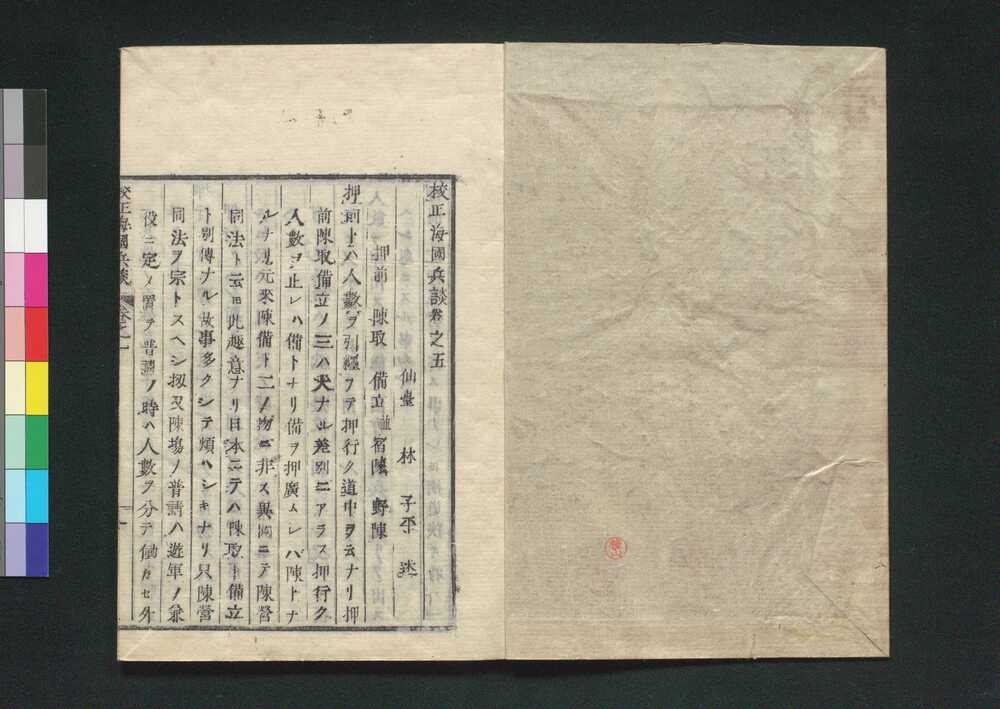 校正海國兵談卷之五
仙臺 林 子平 述
押前 陳取 備立 並宿陳 野陳
押前トハ人數ヲ引纏フテ押行ク道中ヲ云ナリ押
前陳取備立ノ三ハ大ナル差別ニアラス押行ク
人數ヲ止レハ備トナリ備ヲ押廣ムレバ陳トナ
ルナリ元來陳備ト二ノ物ニ非ス異國ニテ陳營
同法ト云モ此趣意ナリ日本ニテハ陳取ト備立
ト別傳ナル故事多クシテ煩ハシキナリ只陳營
同法ヲ宗トスヘシ扨又陳塲ノ普請ハ遊軍ノ兼
役ニ定メ置テ普請ノ時ハ人數ヲ分テ働カセ外
校正海國兵談 卷之